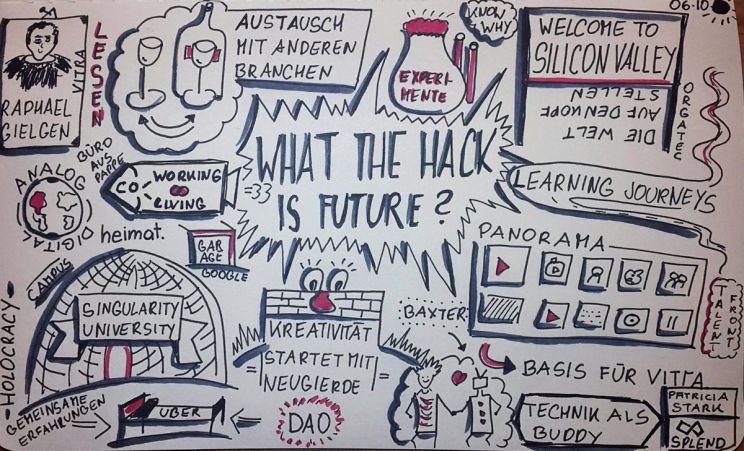 RAPHAEL
GIELGEN
VITRA
LESEN
AUSTAUSCH
MIT ANDEREN
BRANCHEN
EXPERI-
MENTE
KNOW
WHY
06.10
WELCOME TO
SILICON VALLEY
DIE WELT
AUF DEN KOPF
STELLEN
ORGATEC
WHAT THE HACK
IS FUTURE?
ANALOG
DIGITAL
BÜRO
AUS
PAPPE
CO
WORKING
LIVING
=33
heimat.
GAR
AGE
GOOGLE
LEARNING JOURNEYS
PANORAMA
TALENT
FRONT
CAMPUS
SINGULARITY
UNIVERSITY
-HOLOCRACY-
KREATIVITÄT
STARTET MIT
NEUGIERDE
BAXTER
BASIS FÜR VITRA
GEMEINSAME
ERFAHRUNGEN
UBER
DAO
TECHNIK ALS
BUDDY
PATRICIA
STARK
SPLEND